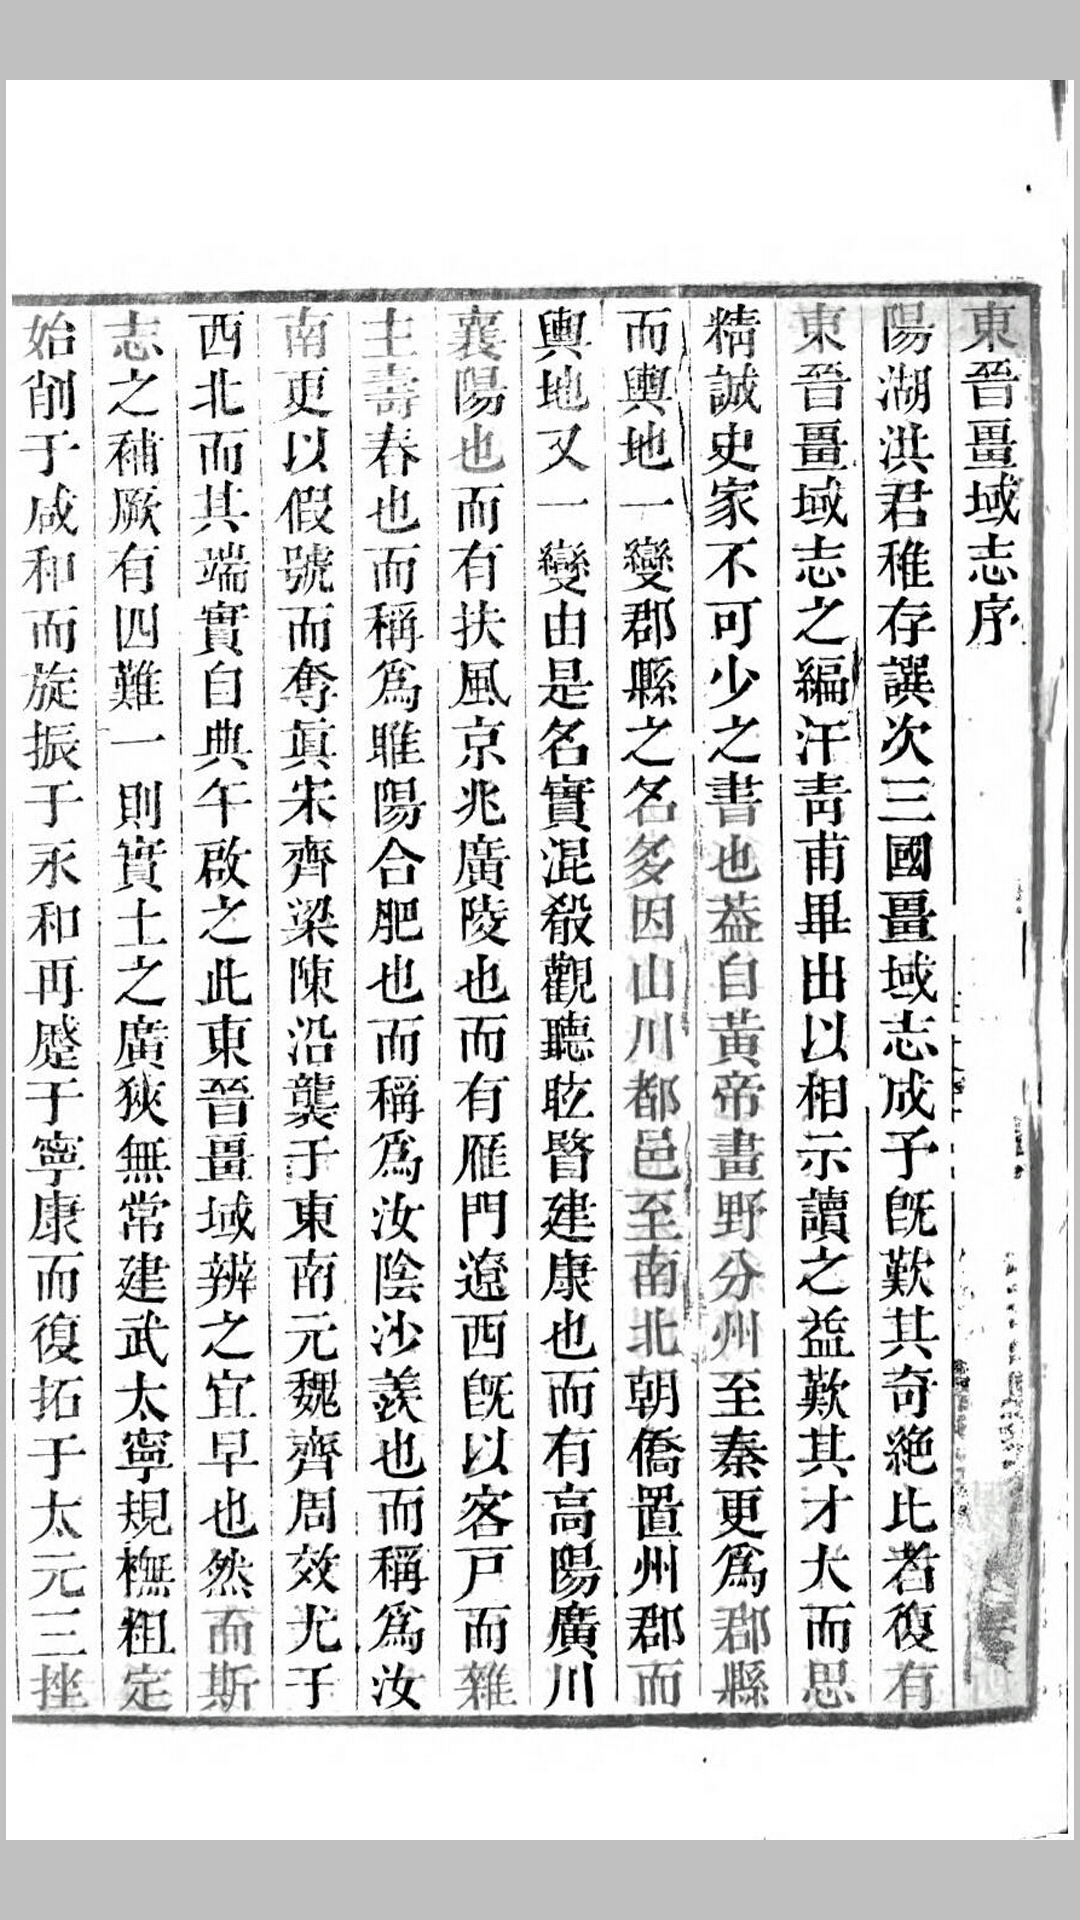 東晉畺域志序
陽湖洪君稚存譔次三國畺域志成予旣歎其奇絶比者復有
東晉畺域志之編汗靑甫畢出以相示讀之益歎其才大而思
精誠史家不可少之書也葢自黃帝畫野分州至秦更爲郡縣
而輿地一變郡縣之名多因山川都邑至南北朝僑置州郡而
輿地又一變由是名實混殽觀聽眩瞀建康也而有高陽廣川
襄陽也而有扶風京兆廣陵也而有雁門遼西旣以客戸而雜
土壽春也而稱爲睢陽合肥也而稱爲汝陰沙羨也而稱爲汝
南更以假號而奪眞宋齊梁陳沿襲于東南元魏齊周效尤于
西北而其端實自典午啟之此東晉畺域辨之宜早也然而斯
志之補厥有四難一則實土之廣狹無常建武太寧規橅粗定
始削于咸和而旋振于永和再蹙于寧康而復拓于太元三挫